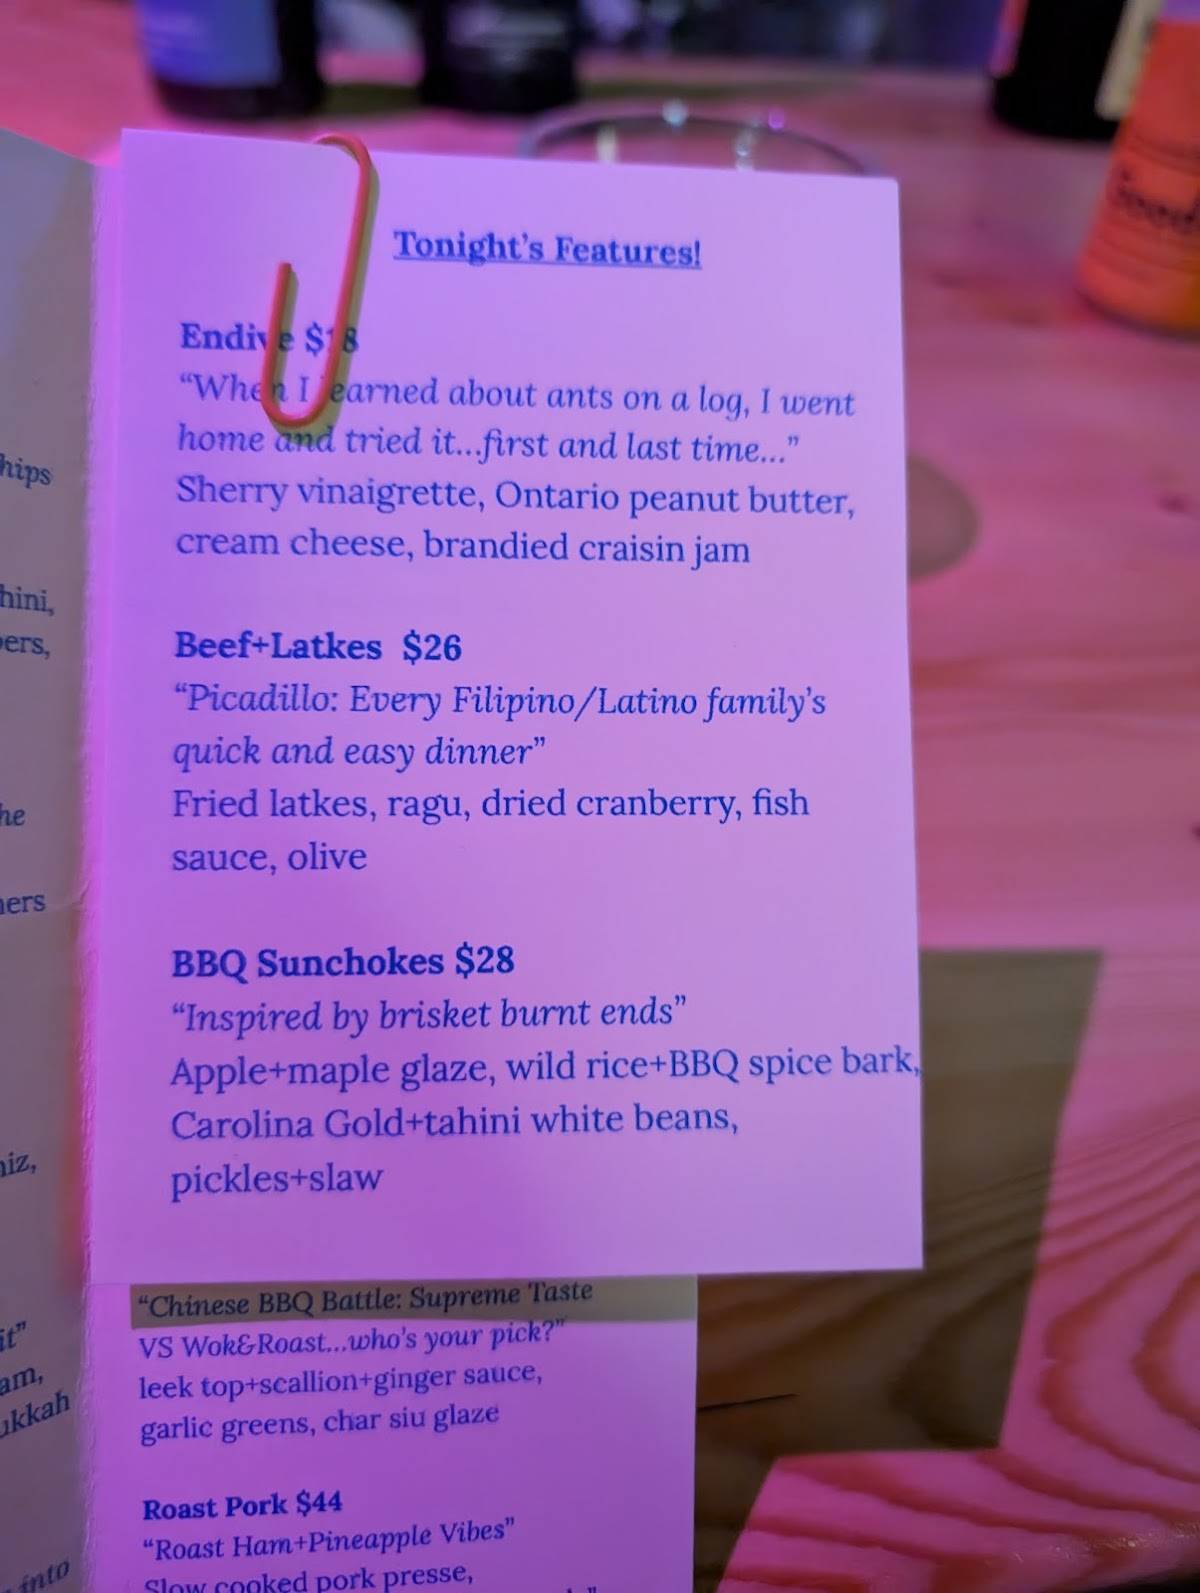 Tonight's Features!
Endive $18
“When I learned about ants on a log, I went
home and tried it...first and last time...”
Sherry vinaigrette, Ontario peanut butter,
cream cheese, brandied craisin jam
Beef+Latkes $26
“Picadillo: Every Filipino/Latino family’s
quick and easy dinner”
Fried latkes, ragu, dried cranberry, fish
sauce, olive
BBQ Sunchokes $28
“Inspired by brisket burnt ends”
Apple+maple glaze, wild rice+BBQ spice bark,
Carolina Gold+tahini white beans,
pickles+slaw
“Chinese BBQ Battle: Supreme Taste
VS Wok&Roast...who’s your pick?”
leek top+scallion+ginger sauce,
garlic greens, char siu glaze
Roast Pork $44
“Roast Ham+Pineapple Vibes”
Slow cooked pork presse,
hips
hini,
ers,
he
ers
iz,
it”
am,
ukkah
into